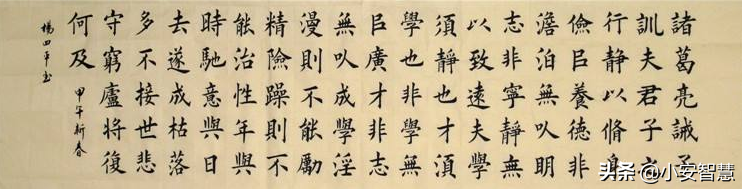 諸葛亮誡子
訓夫君子之
行静以脩身
儉㠯養德非
澹泊無㕥明
志非寧静無
以致遠夫學
須静也才須
學也非學無
㠯廣才非志
無㕥成學淫
漫則不能勵
精險躁則不
能治性年與
時馳意與日
去遂成枯落
多不接世悲
守窮廬將復
何及
甲午新春
楊四平
头条 @小安智慧